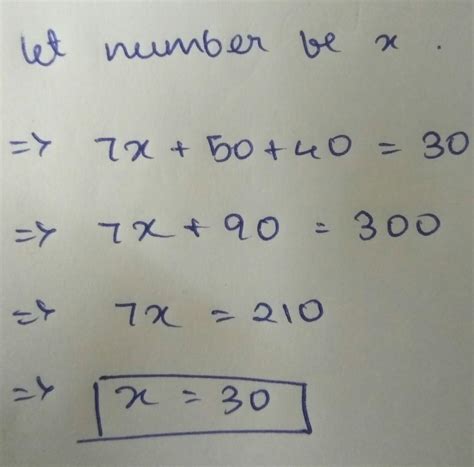 let number be x .
=> 7x + 50 + 40 = 30
=> 7x + 90 = 300
=> 7x = 210
=> x = 30